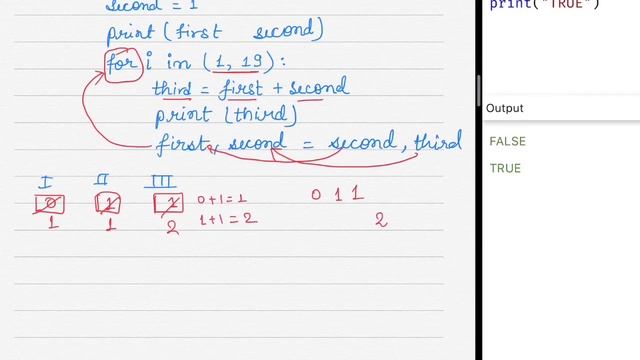 second = 1
print(first second)
for i in (1, 19):
third = first + second
print (third)
first, second = second, third
I II III
0 1 1 0+1=1 0 1 1
1 1 2 1+1=2 2
print("TRUE")
Output
FALSE
TRUE